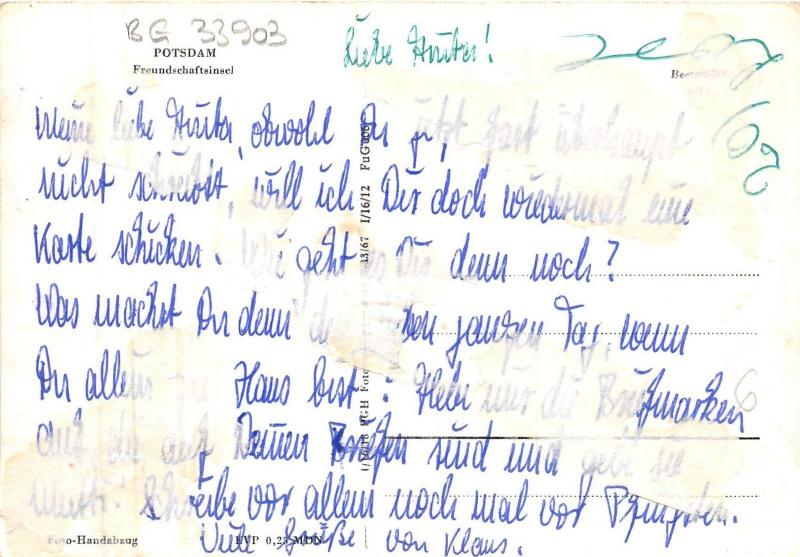 BG 33903
POTSDAM
Freundschaftsinsel
Liebe Anita!
Meine liebe Anita, obwohl Du jetzt fast überhaupt
nicht schreibst, will ich Dir doch wiedermal eine
Karte schicken. Wie geht es Dir denn noch?
Was machst Du denn den ganzen Tag, wenn
Du allein zu Haus bist? Hebe mir die Briefmarken
auf, die auf Deinen Briefen sind und gebe sie
Mutti! Schreibe vor allem noch mal vor Pfingsten.
Viele Grüße von Klaus.
Foto-Handabzug
EVP 0,25 MDN
13/67 I/16/12 FuG